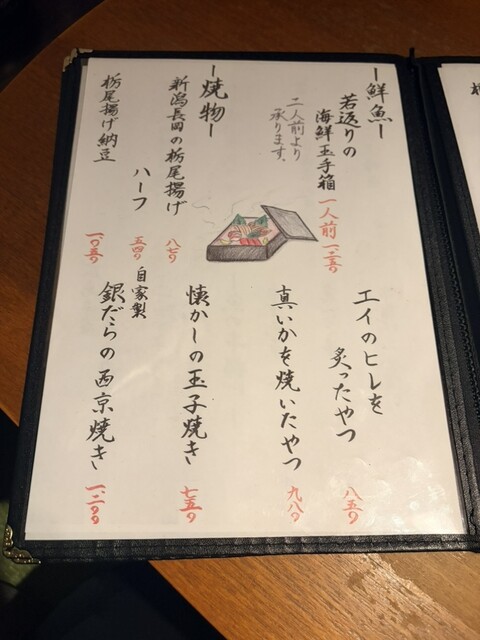 ー鮮魚ー
若返りの
海鮮玉手箱
一人前
二人前より
承ります。
エイのヒレを
炙ったやつ
八五〇
真いかを焼いたやつ
九八〇
ー焼物ー
新潟長岡の栃尾揚げ
八七〇
ハーフ
五四〇
栃尾揚げ納豆
一、〇五〇
懐かしの玉子焼き
七五〇
自家製
銀だらの西京焼き
一、二〇〇